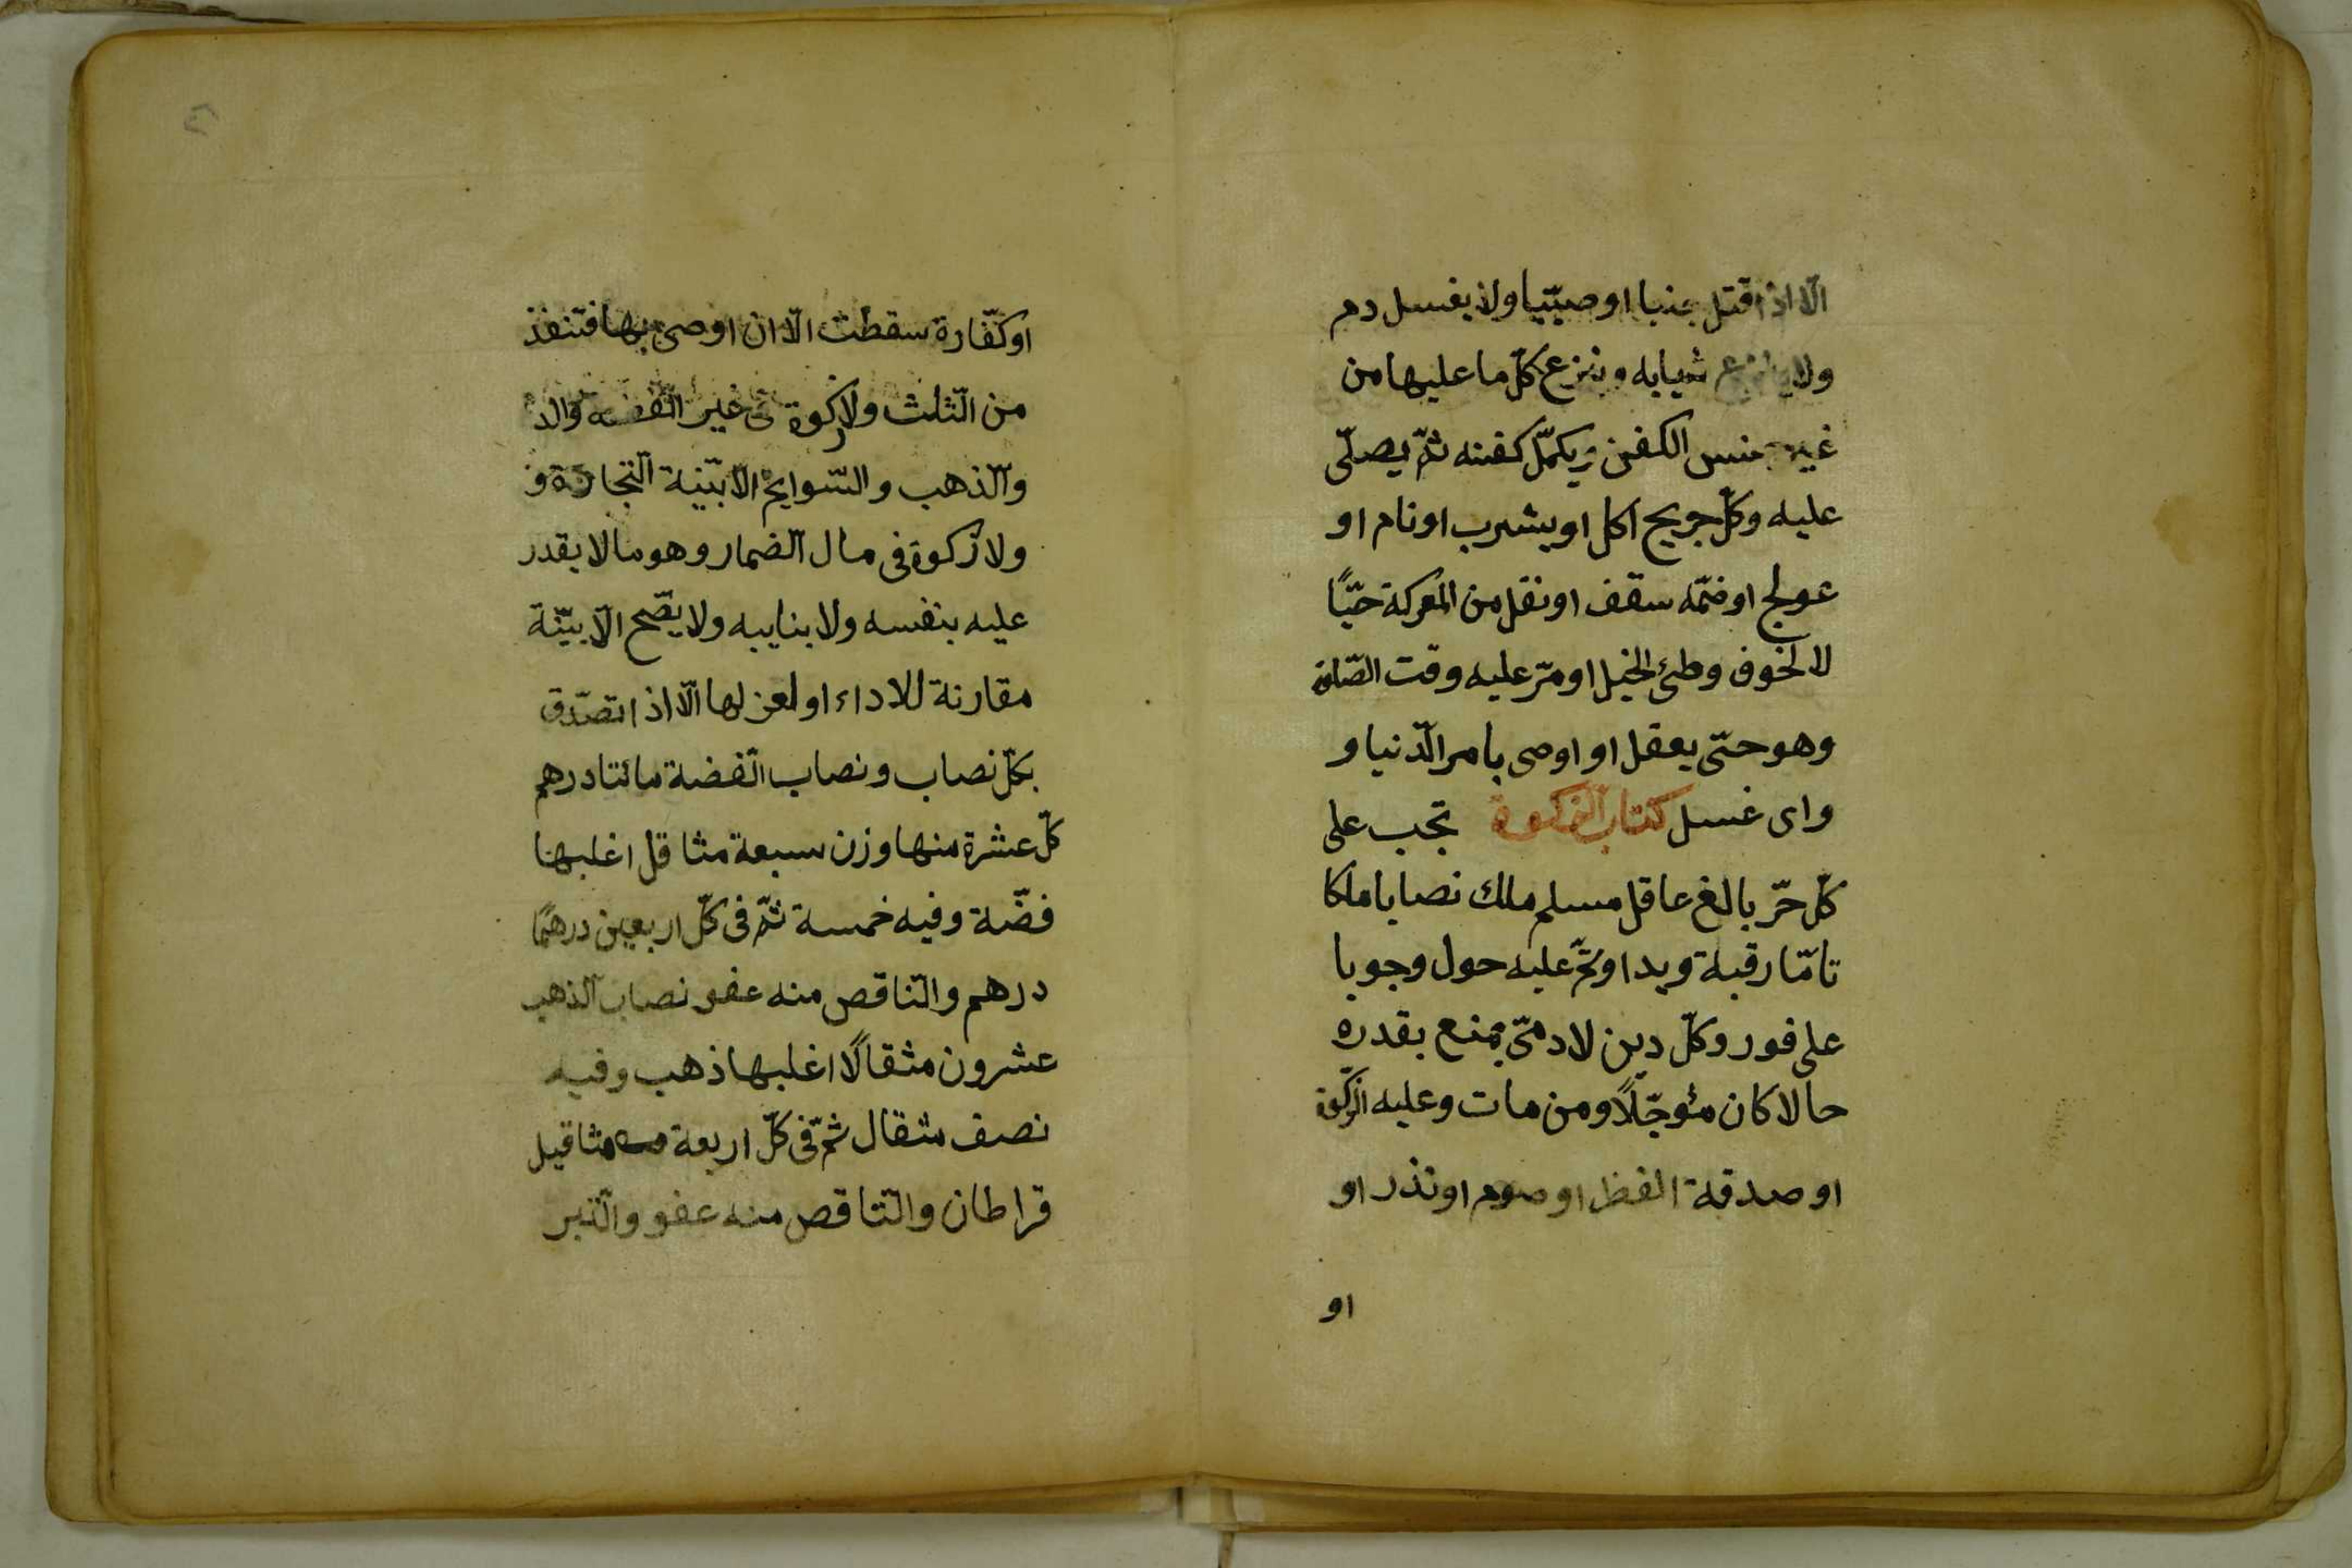 الّا اذا قتل جنبا او صبّيا ولا يغسل دم
ولا ينزع ثيابه وينزع كلّ ما عليها من
غير جنس الكفن ويكمّل كفنه ثمّ يصلّى
عليه وكلّ جريح اكل او يشرب او نام او
عولج او ضمّه سقف او نقل من المعركة حيّاً
لا لخوف وطئ الخيل او مرّ عليه وقت الصّلوة
وهو حتى يعقل او اوصى بامر الّدنيا و
واى غسل كتاب الزكوة تجب على
كلّ حرّ بالغ عاقل مسلم ملك نصابا ملكا
تامّا رقبة ويدا وتمّ عليه حول وجوبا
على فور وكلّ دين لادمىّ يمنع بقدره
حالا كان مئوجّلاً ومن مات وعليه الزّكوة
او صدقة الفطر او صوم او نذر او
او
او كفّارة سقطت الّا ان اوصى بها فتنفذ
من الثّلث ولا زكوة فى غير الفّضه والذ
والّذهب والسّوايم الا بنّية التّجارة و
ولا زكوة فى مال الضمار وهو ما لا يقدر
عليه بنفسه ولا بنايبه ولا يصّح الّا بنيّة
مقارنة للاداء او لعزلها الّا اذا تصدّق
بكلّ نصاب ونصاب الفّضة مائتا درهم
كلّ عشرة منها وزن سبعة مثاقل اغلبها
فضّة وفيه خمسة ثمّ فى كلّ اربعين درهمًا
درهم والنّاقص منه عفو نصاب الّذهب
عشرون مثقالًا اغلبها ذهب وفيه
نصف مثقال ثمّ فى كلّ اربعة مثاقيل
قراطان والنّاقص منه عفو والتّبر